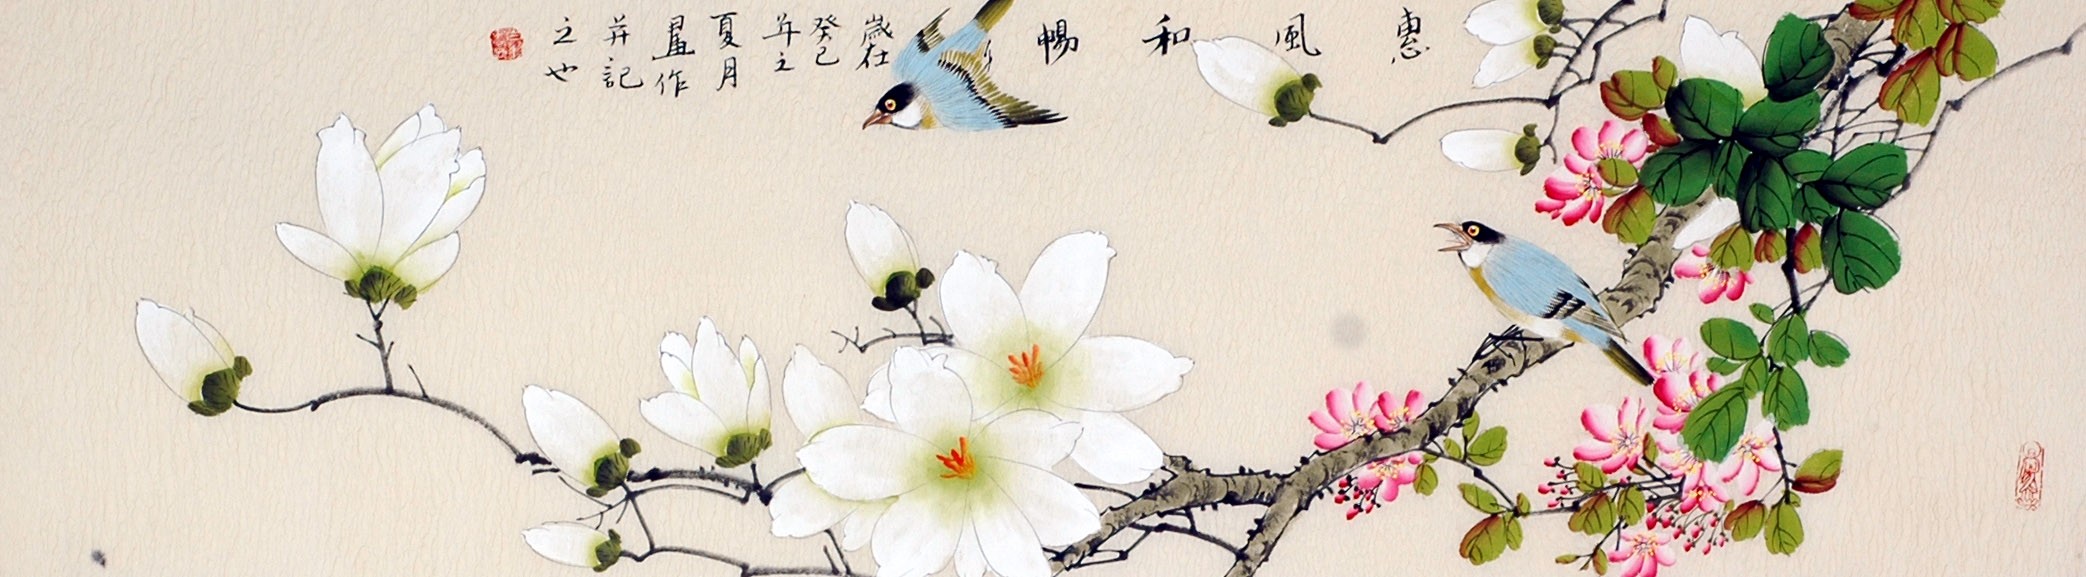 惠風和暢
歲在
癸巳
年之
夏月
畫作
并記
之也